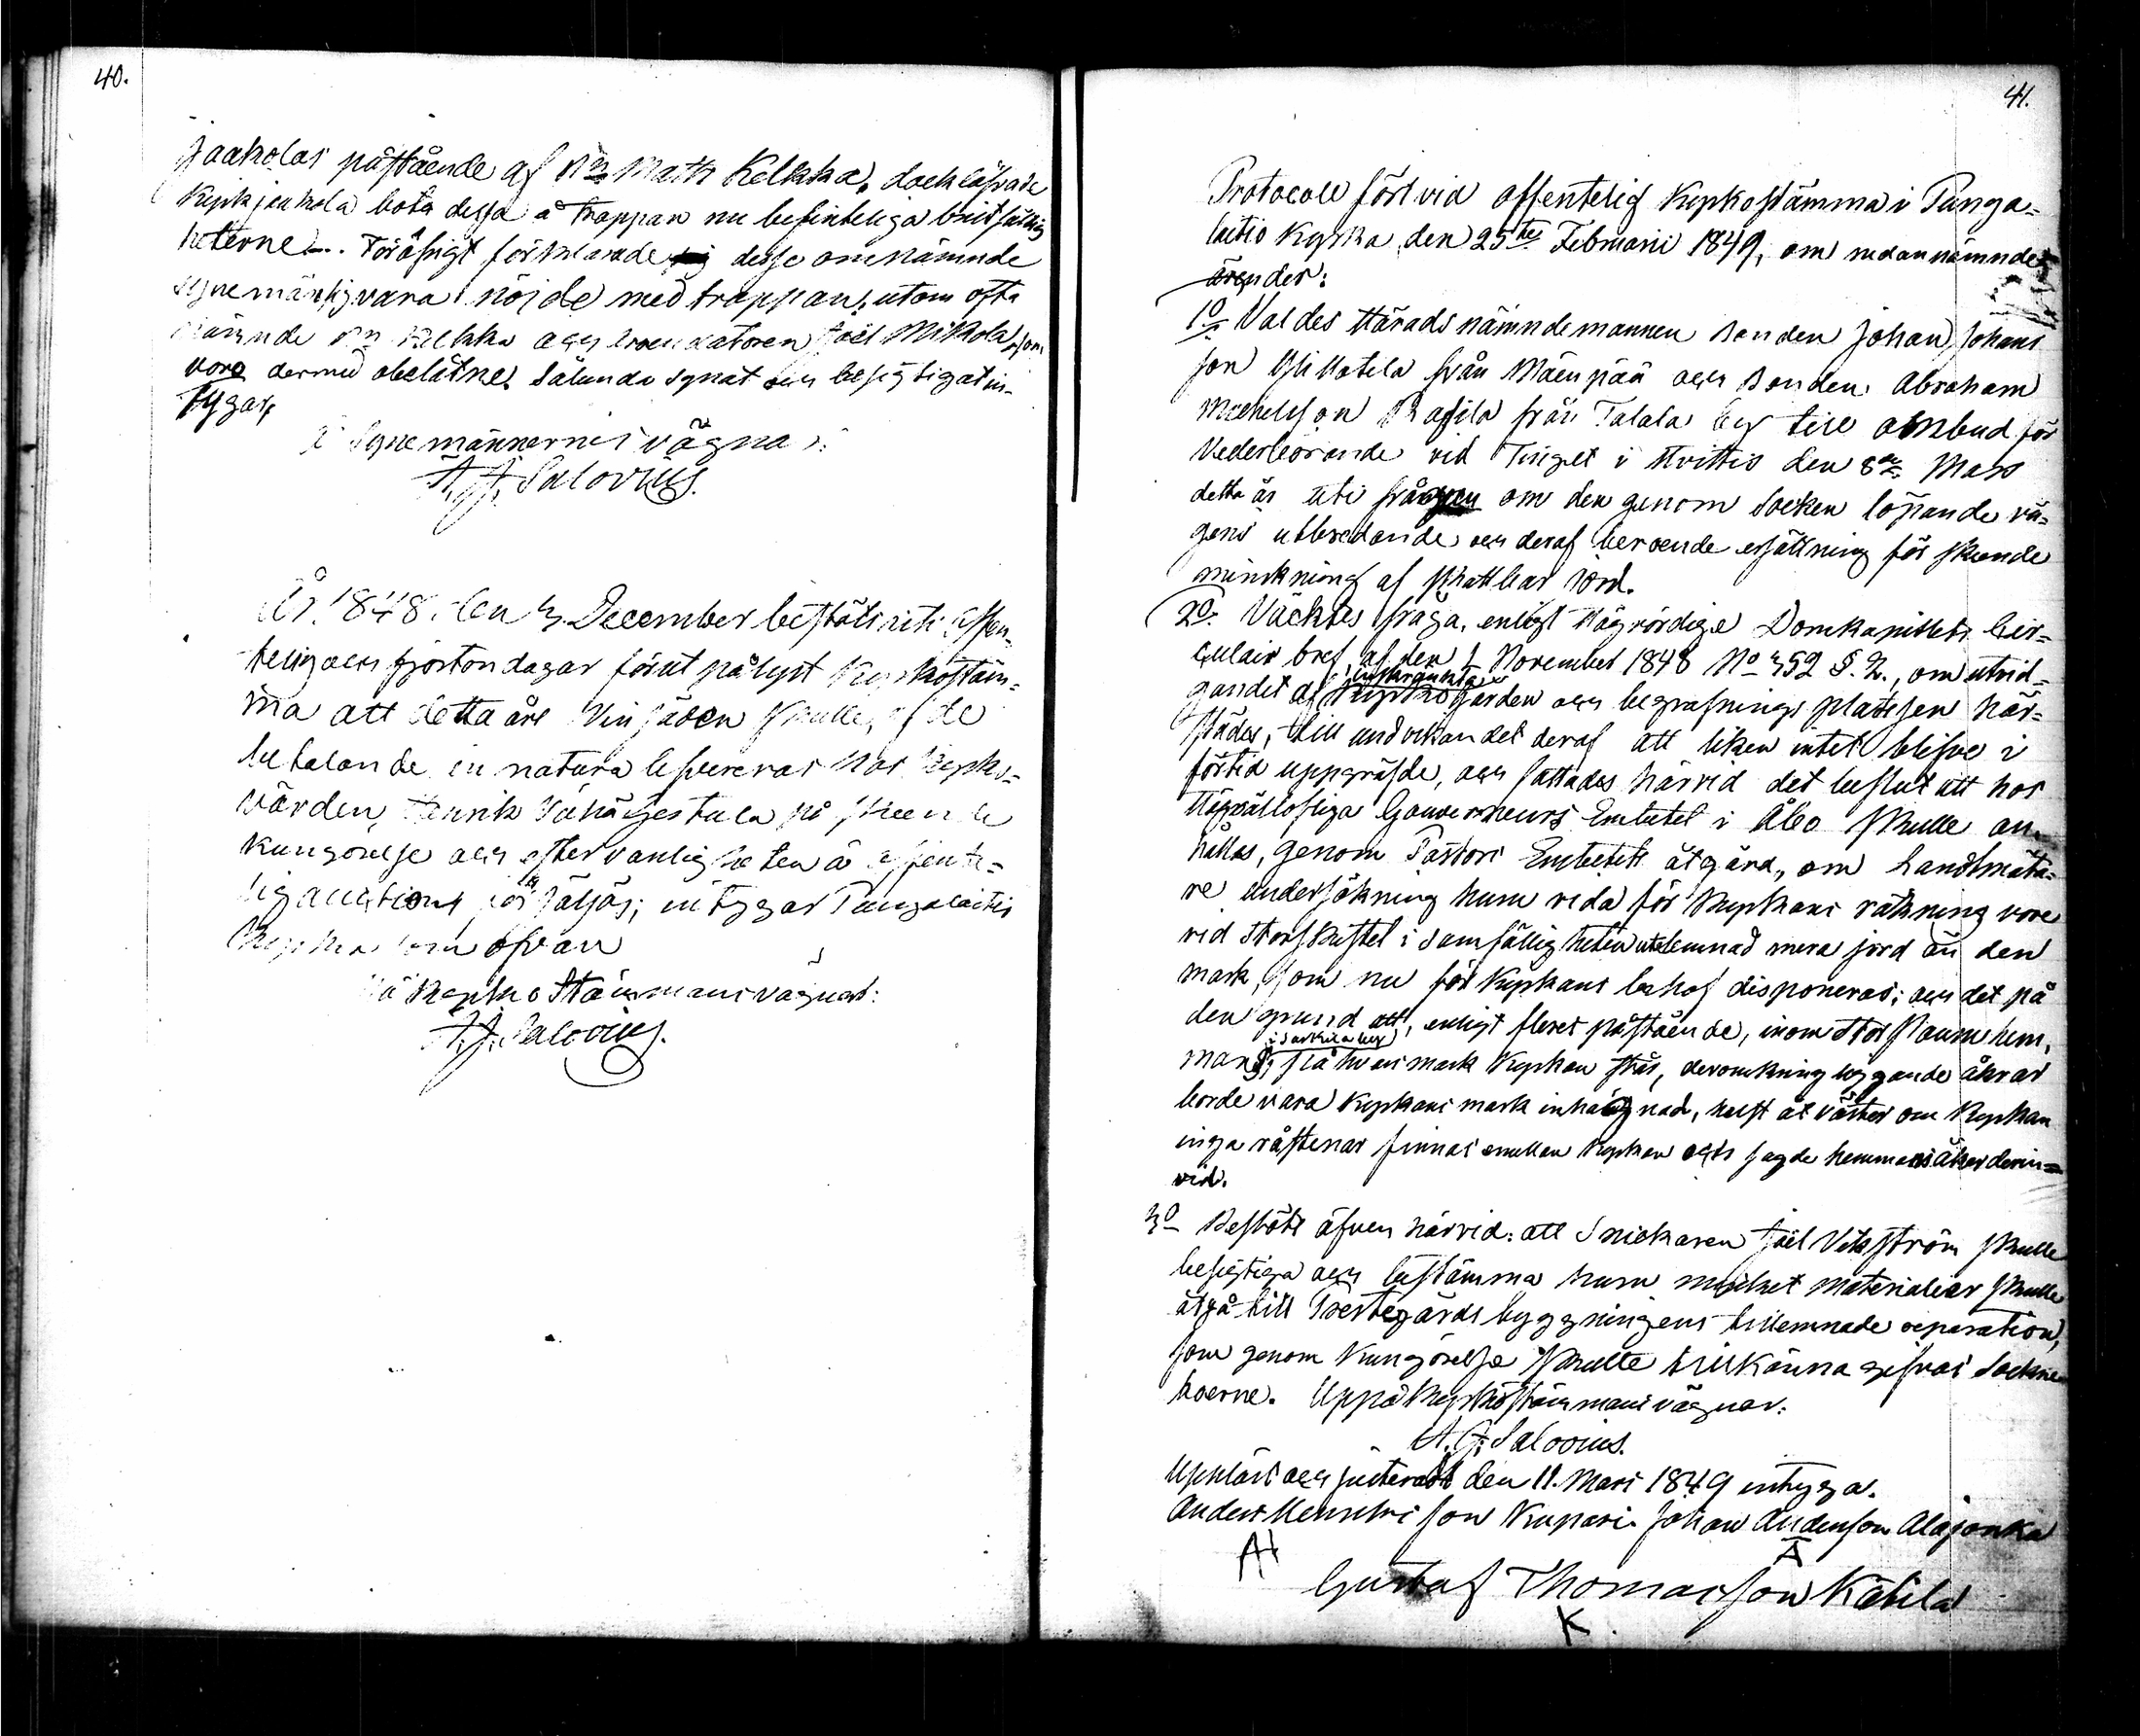 40.
Jaakolas påstående af Bn Matts Kelkka, dock lofvade
Kyrkjenkola bota dessa å trappan nu befinteliga bristfällig
heterne. Föröfrigt förklarade desse omnämnde
synemän sig vara nöjde med trappan, utom ofta
nämnde Bn Kelkka och Joel Mikola, som
voro dermed obelåtne. Sålunda synat och besigtigat in-
tygar,
å Synemännernes vägna:
A. J. Salovius.
År 1848. den 3. December bestöts uti offen-
telig och fjorton dagar förut pålyst Kyrkostäm-
ma att detta års skulle, af de
betalande in natura lefvereras hos Kyrko-
värden, Henrik på skeende
Kungörelse och efter vanligheten å offente-
lig auction försäljas; intygar Pungalaitio
Kyrka som ofvan
på Kyrko Stämmans vägnar:
A. J. Salovius.
41.
Protocoll fördt vid offentelig Kyrkostämma i Punga-
laitio Kyrka den 25te Februarii 1849, om nedannämnde
ärender:
1o Valdes Häradsnämndemannen Bonden Johan Johans
son Yli Kotila från Mäenpää och Bonden Abraham
Michelsson från Talala by till ombud för
Vederbörande vid Tinget i Hvittis den 8de Mars
detta år uti frågan om den genom Socken löpande vä-
gens utbredande och deraf beroende ersättning för skeende
minskning af skattbar jord.
2o Väcktes fråga, enligt Högvördige Domkapitlets Cir-
culair bref, af den 1 November 1848 No 352 §. 2., om utvid-
gandet af Kyrkogården och begrafnings platsen här-
städes, till undvikandet deraf att liken intet blifve i
förtid uppgräfde, och fattades härvid det beslut att hos
Högvällofliga Gouverneurs Embetet i Åbo skulle an-
hållas, genom Pastors Embetets åtgärd, om Landtmäta-
re undersökning huru vida för Kyrkans räkning vore
vid Storskiftet i Samfälligheten utelemnad mera jord än den
mark, som nu för Kyrkans behof disponeras; och det på
den grund att, enligt fleres påstående, inom Stor Naum hem-
mans, i Sarkila by på hvars mark Kyrkan står, deromkring liggande åkrar
borde vara Kyrkans mark inhägnad, helst åt väster om Kyrkan
inga råstenar finnas emellan Kyrkan och sagde hemmans åker derin-
vid.
3o Bestöts äfven härvid: att Snickaren Joel Vikström skulle
besigtiga och bestämma huru mycket materialier skulle
åtgå till Prestegårds byggningens tillemnade reparation,
som genom Kungörelse skulle tillkänna gifvas Sockne
boerne. Uppå Kyrkostämmans vägnar:
A. J. Salovius.
Uppläst och justeradt den 11. Mars 1849 intyga.
Anders Henrikson Kupari. Johan Anderson Alajonka
AH
A
Gustaf Thomasson Kätila
K.